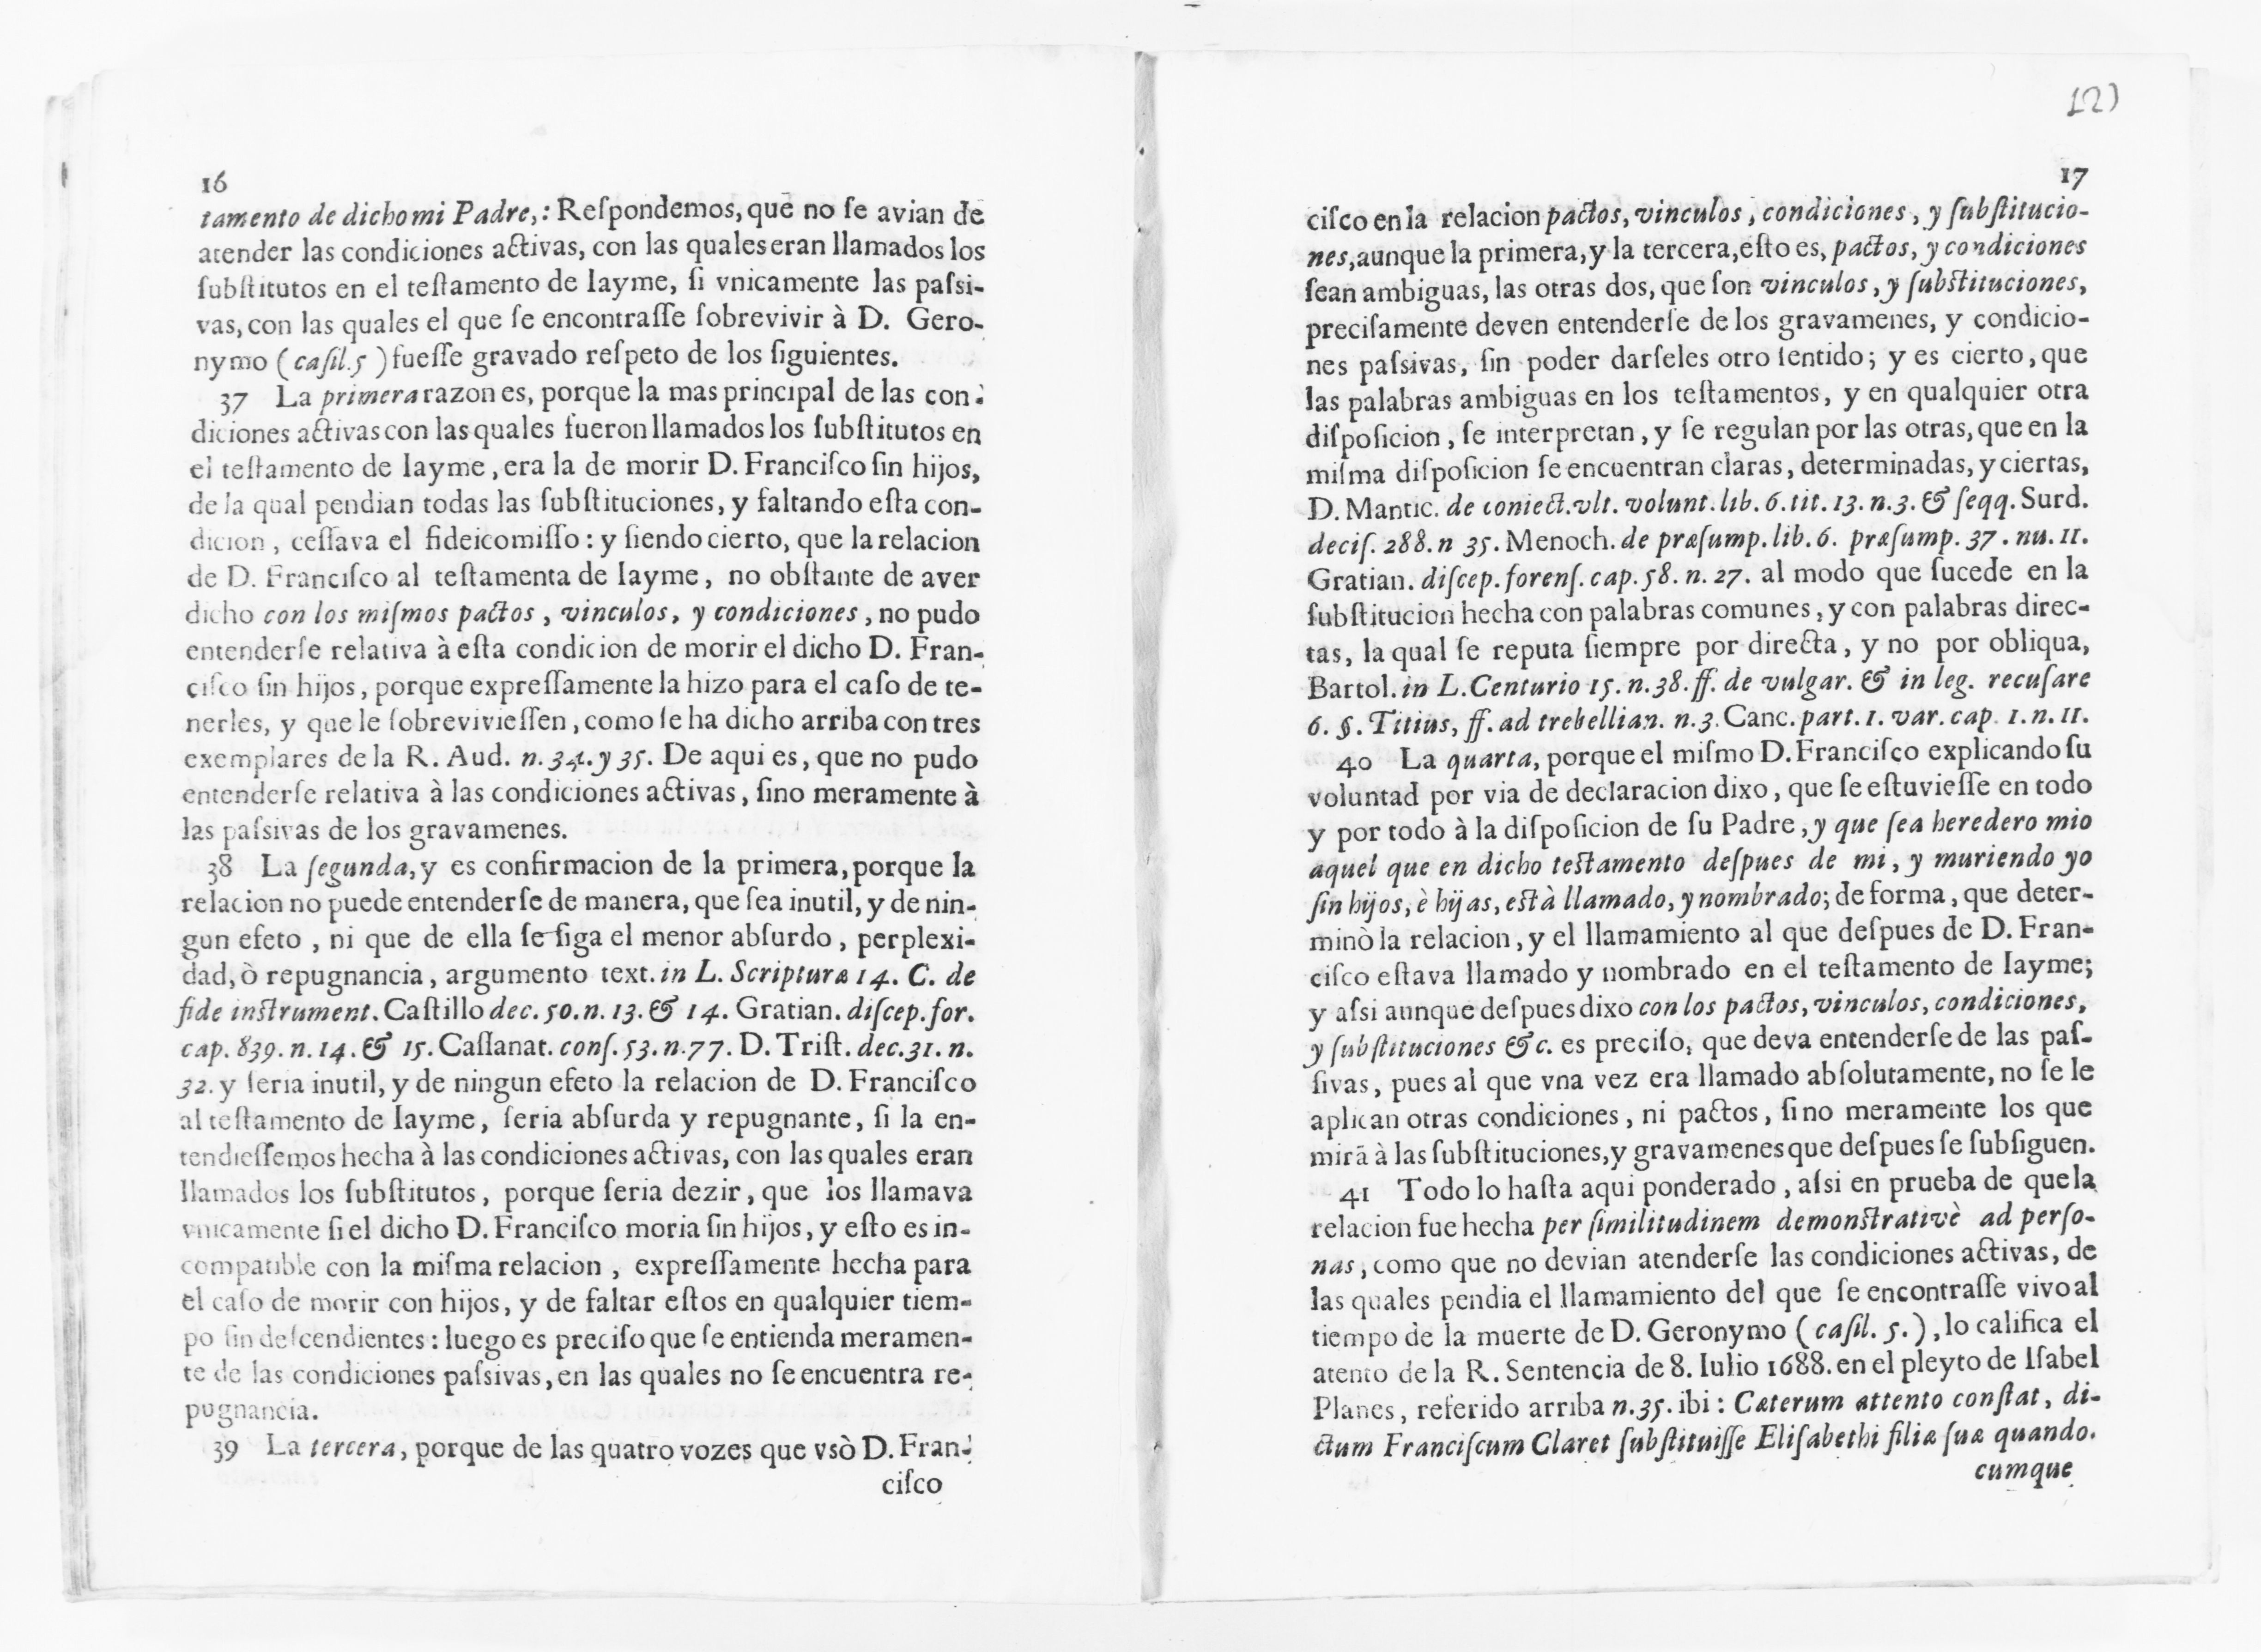 16
tamento de dicho mi Padre,: Reſpondemos, quē no ſe avian de
atender las condiciones activas, con las quales eran llamados los
ſubſtitutos en el teſtamento de Iayme, ſi vnicamente las paſsi-
vas, con las quales el que ſe encontraſſe ſobrevivir à D. Gero-
nymo (caſil. 5 ) fueſſe gravado reſpeto de los ſiguientes.
37 La primera razon es, porque la mas principal de las con-
diciones activas con las quales fueron llamados los ſubſtitutos en
el teſtamento de Iayme, era la de morir D. Franciſco ſin hijos,
de la qual pendian todas las ſubſtituciones, y faltando eſta con-
dicion, ceſſava el fideicomiſſo: y ſiendo cierto, que la relacion
de D. Franciſco al teſtamenta de Iayme, no obſtante de aver
dicho con los miſmos pactos, vinculos, y condiciones, no pudo
entenderſe relativa à eſta condicion de morir el dicho D. Fran-
ciſco ſin hijos, porque expreſſamente la hizo para el caſo de te-
nerles, y que le ſobrevivieſſen, como ſe ha dicho arriba con tres
exemplares de la R. Aud. n. 34. y 35. De aqui es, que no pudo
entenderſe relativa à las condiciones activas, ſino meramente à
las paſsivas de los gravamenes.
38 La ſegunda, y es confirmacion de la primera, porque la
relacion no puede entenderſe de manera, que ſea inutil, y de nin-
gun efeto, ni que de ella ſe ſiga el menor abſurdo, perplexi-
dad, ò repugnancia, argumento text. in L. Scripturæ 14. C. de
fide inſtrument. Caſtillo dec. 50. n. 13. & 14. Gratian. diſcep. for.
cap. 839. n. 14. & 15. Caſſanat. conſ. 53. n. 77. D. Triſt. dec. 31. n.
32. y ſeria inutil, y de ningun efeto la relacion de D. Franciſco
al teſtamento de Iayme, ſeria abſurda y repugnante, ſi la en-
tendieſſemos hecha à las condiciones activas, con las quales eran
llamados los ſubſtitutos, porque ſeria dezir, que los llamava
vnicamente ſi el dicho D. Franciſco moria ſin hijos, y eſto es in-
compatible con la miſma relacion, expreſſamente hecha para
el caſo de morir con hijos, y de faltar eſtos en qualquier tiem-
po ſin deſcendientes: luego es preciſo que ſe entienda meramen-
te de las condiciones paſsivas, en las quales no ſe encuentra re-
pugnancia.
39 La tercera, porque de las quatro vozes que vsò D. Fran-
ciſco
17
ciſco en la relacion pactos, vinculos, condiciones, y ſubſtitucio-
nes, aunque la primera, y la tercera, eſto es, pactos, y condiciones
ſean ambiguas, las otras dos, que ſon vinculos, y ſubſtituciones,
preciſamente deven entenderſe de los gravamenes, y condicio-
nes paſsivas, ſin poder darſeles otro ſentido; y es cierto, que
las palabras ambiguas en los teſtamentos, y en qualquier otra
diſpoſicion, ſe interpretan, y ſe regulan por las otras, que en la
miſma diſpoſicion ſe encuentran claras, determinadas, y ciertas,
D. Mantic. de coniect. vlt. volunt. lib. 6. tit. 13. n. 3. & ſeqq. Surd.
deciſ. 288. n 35. Menoch. de præſump. lib. 6. præſump. 37. nu. 11.
Gratian. diſcep. forenſ. cap. 58. n. 27. al modo que ſucede en la
ſubſtitucion hecha con palabras comunes, y con palabras direc-
tas, la qual ſe reputa ſiempre por directa, y no por obliqua,
Bartol. in L. Centurio 15. n. 38. ff. de vulgar. & in leg. recuſare
6. §. Titius, ff. ad trebellian. n. 3. Canc. part. 1. var. cap. 1. n. 11.
40 La quarta, porque el miſmo D. Franciſco explicando ſu
voluntad por via de declaracion dixo, que ſe eſtuvieſſe en todo
y por todo à la diſpoſicion de ſu Padre, y que ſea heredero mio
aquel que en dicho teſtamento deſpues de mi, y muriendo yo
ſin hijos, è hijas, eſtà llamado, y nombrado; de forma, que deter-
minò la relacion, y el llamamiento al que deſpues de D. Fran-
ciſco eſtava llamado y nombrado en el teſtamento de Iayme;
y aſsi aunque deſpues dixo con los pactos, vinculos, condiciones,
y ſubſtituciones &c. es preciſo, que deva entenderſe de las paſ-
ſivas, pues al que vna vez era llamado abſolutamente, no ſe le
aplican otras condiciones, ni pactos, ſino meramente los que
mirā à las ſubſtituciones, y gravamenes que deſpues ſe ſubſiguen.
41 Todo lo haſta aqui ponderado, aſsi en prueba de que la
relacion fue hecha per ſimilitudinem demonſtrativè ad perſo-
nas, como que no devian atenderſe las condiciones activas, de
las quales pendia el llamamiento del que ſe encontraſſe vivo al
tiempo de la muerte de D. Geronymo (caſil. 5.), lo califica el
atento de la R. Sentencia de 8. Iulio 1688. en el pleyto de Iſabel
Planes, referido arriba n. 35. ibi: Cæterum attento conſtat, di-
ctum Franciſcum Claret ſubſtituiſſe Eliſabethi filiæ ſuæ quando.
cumque